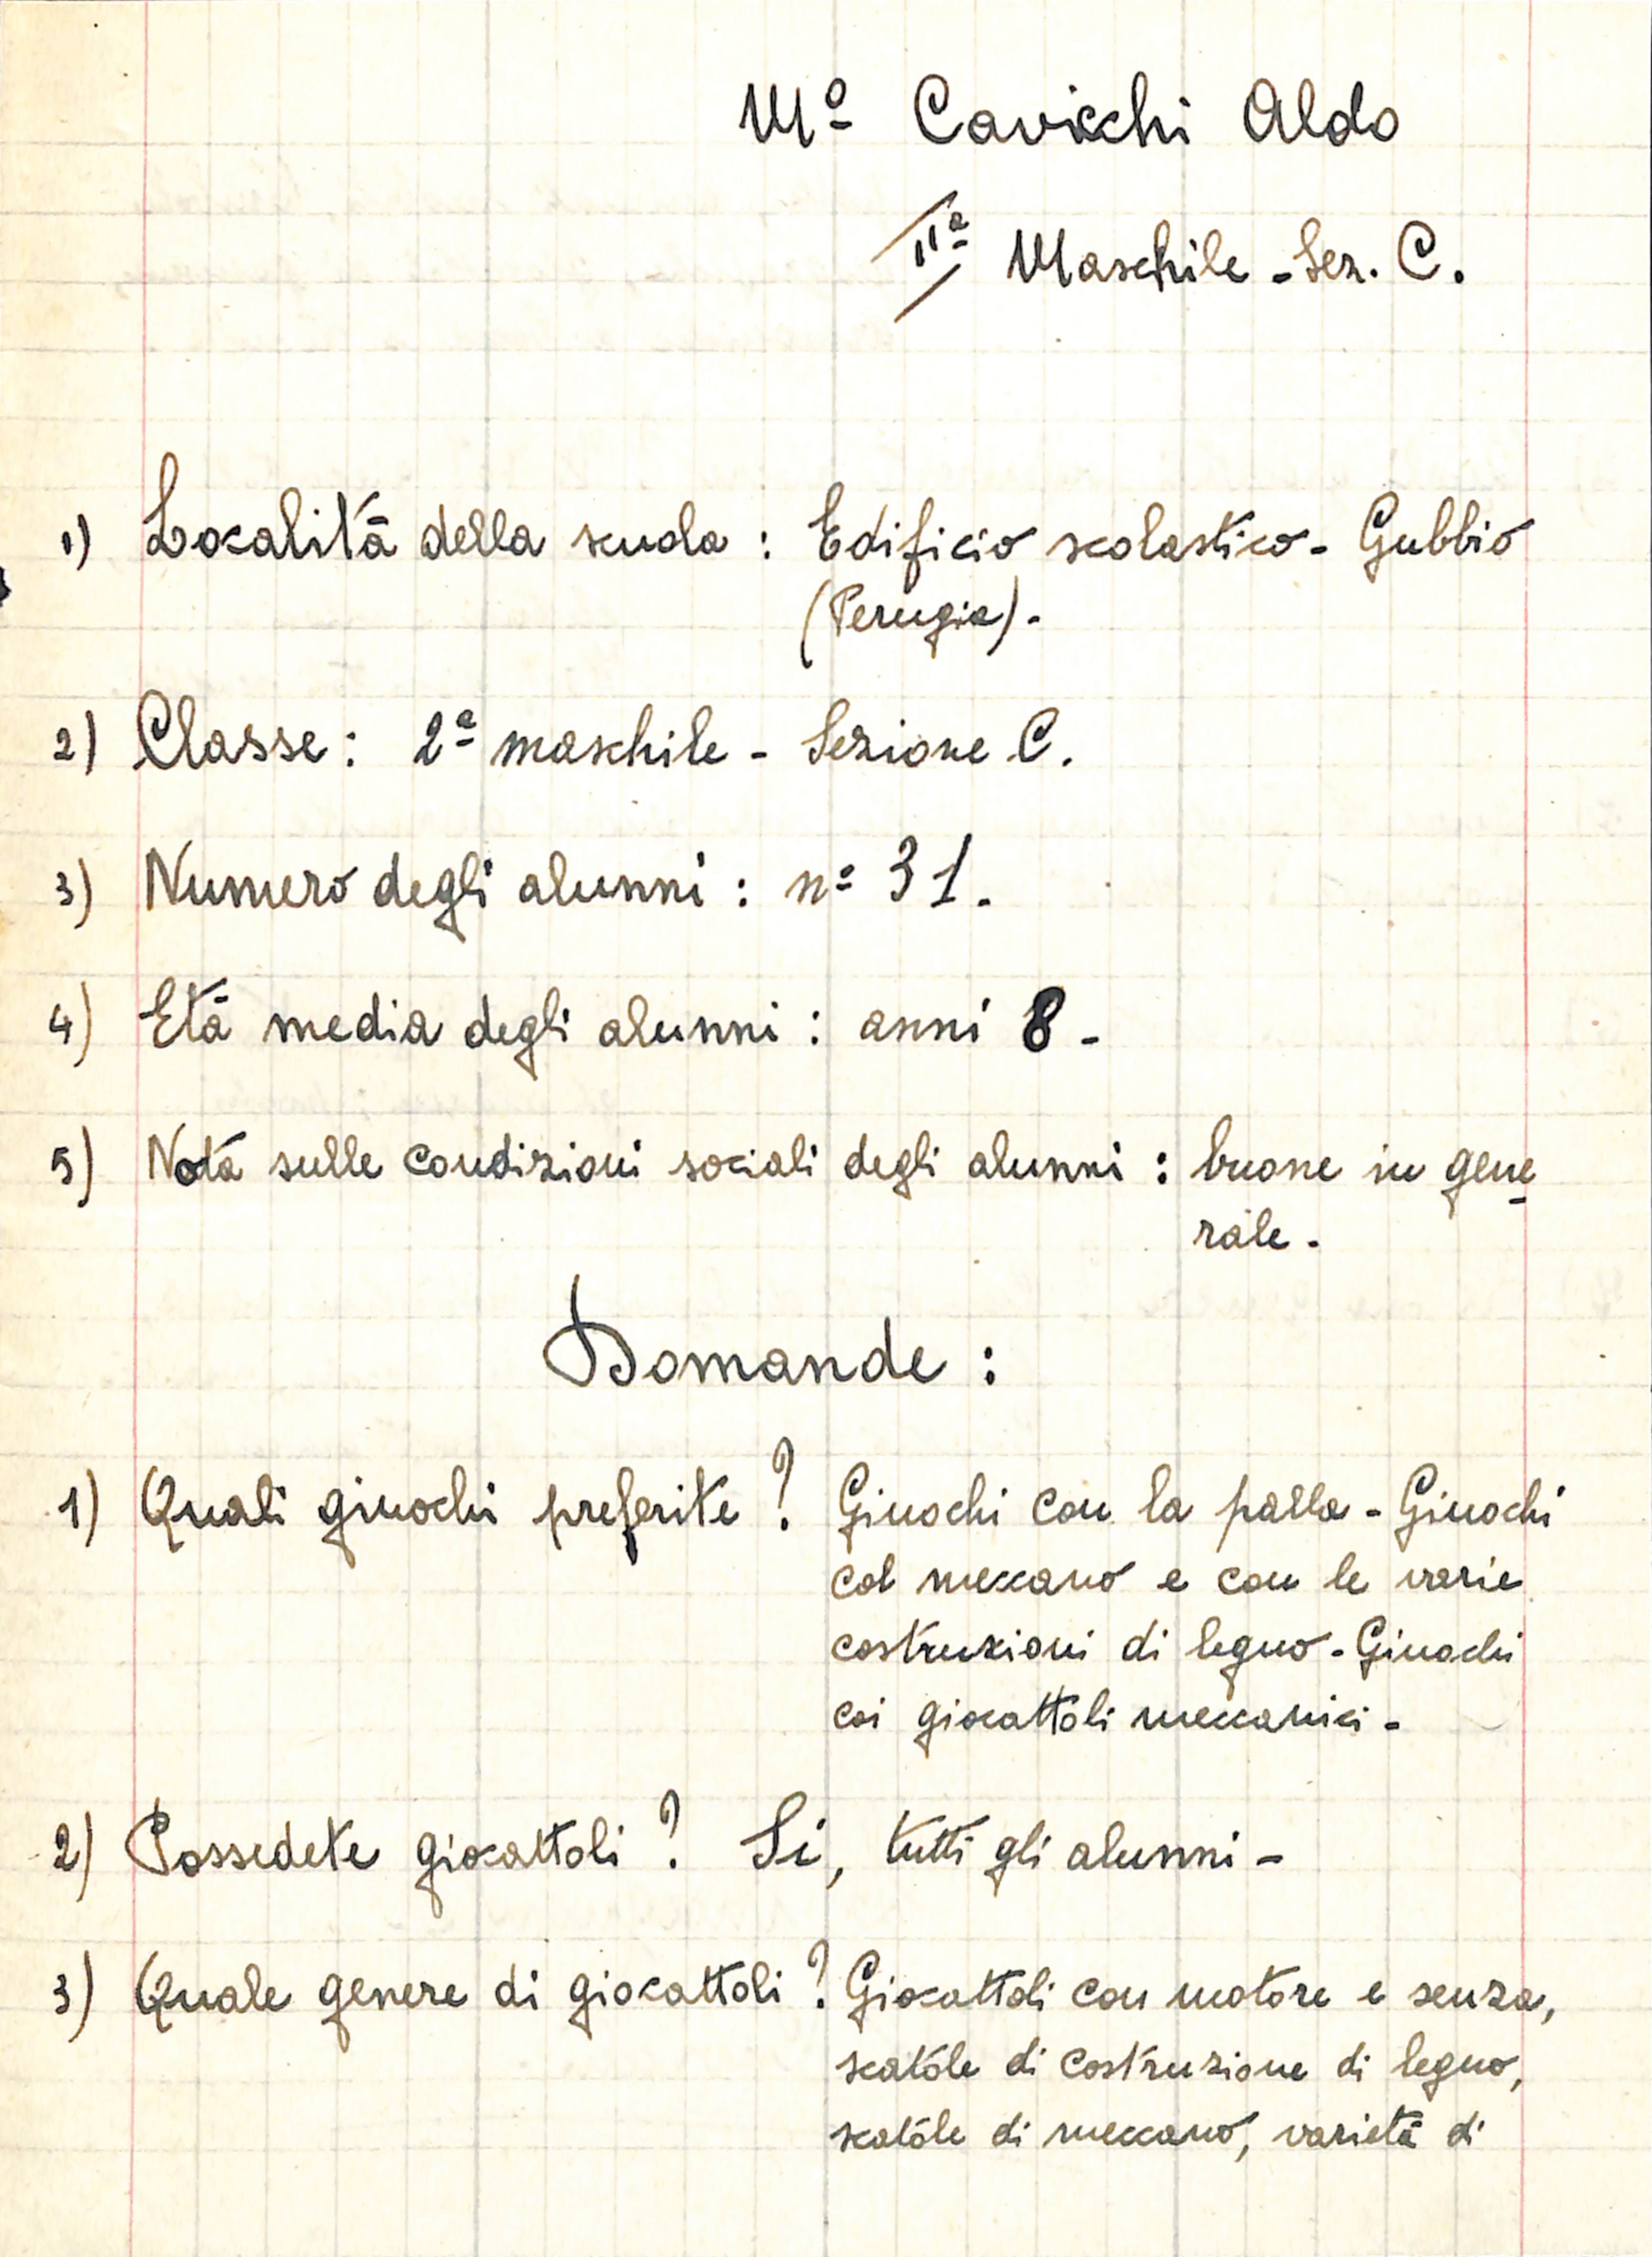 Mº Cavicchi Aldo
IIª Maschile - Sez. C.
1) Località della scuola : Edificio scolastico - Gubbio
(Perugia) -
2) Classe : 2ª maschile - Sezione C.
3) Numero degli alunni : nº 31 -
4) Età media degli alunni : anni 8 -
5) Nota sulle condizioni sociali degli alunni : buone in gene
rale -
Domande :
1) Quali giuochi preferite ? Giuochi con la palla - Giuochi
col meccano e con le varie
costruzioni di legno - Giuochi
coi giocattoli meccanici -
2) Possedete giocattoli ? Si, tutti gli alunni -
3) Quale genere di giocattoli ? Giocattoli con motore e senza,
scatole di costruzione di legno,
scatole di meccano, varietà di